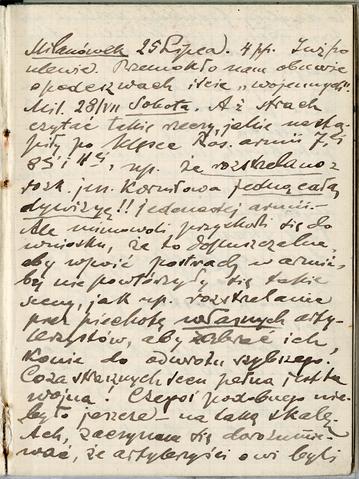 Milanówek 25 Lipca. 4 pp. Znów po
ulewie. Przemokło nam obuwie
o podeszwach iście „wojennych".
Mil. 28/VII Sobota. Aż strach
czytać takie rzeczy, jakie nastą-
piły po klęsce Ros. armii 7, i
8ej i 11ej, np. że rozstrzelano z
rozk. jen. Korniłowa jedną całą
dywizyę!! jedenastej armii—
Ale mimowoli przychodzi się do
wniosku, że to dopuszczalne,
aby wpoić postrach w armię,
by nie powtórzyły się takie
sceny, jak np. rozstrzelanie
przez piechotę własnych arty-
lerzystów, aby zabrać ich
konie do odwrotu szybszego!
Cóż za strasznych scen pełna jest ta
wojna! Czegoś podobnego nie-
było jeszcze — na taką skalę.
Ach, zaczynam się dorozumie-
wać, że artylerzyści owi byli